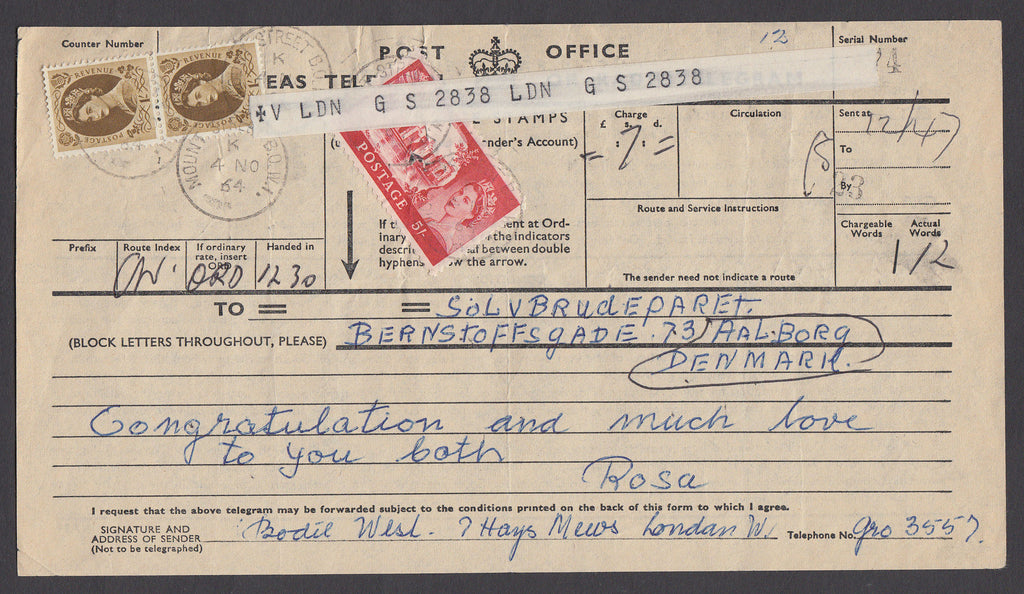 Counter Number
POST OFFICE
12
Serial Number
EAS TELE
✠V LDN G S 2838 LDN G S 2838
REVENUE
POSTAGE
REVENUE
POSTAGE
STREET B.O.
MOUNT B.O.W.1.
K
4 NO
64
POSTAGE 5/-
STAMPS
nder's Account)
Charge
£ s. d.
= 7 : =
Circulation
Sent at
12/47
To
By
23
If th ent at Ord-
inary the indicators
descri al between double
hyphens w the arrow.
Route and Service Instructions
The sender need not indicate a route
Chargeable Words
Actual Words
1/2
Prefix
Route Index
If ordinary rate, insert ORD
Handed in
ORD
1230
TO = = SÖLVBRUDEPARET.
(BLOCK LETTERS THROUGHOUT, PLEASE) BERNSTOFFSGADE. 73 AALBORG
DENMARK.
Congratulation and much love
to you both
Rosa
I request that the above telegram may be forwarded subject to the conditions printed on the back of this form to which I agree.
SIGNATURE AND ADDRESS OF SENDER Bodil West. 7 Hays Mews London W. Telephone No. gro 3557.
(Not to be telegraphed)